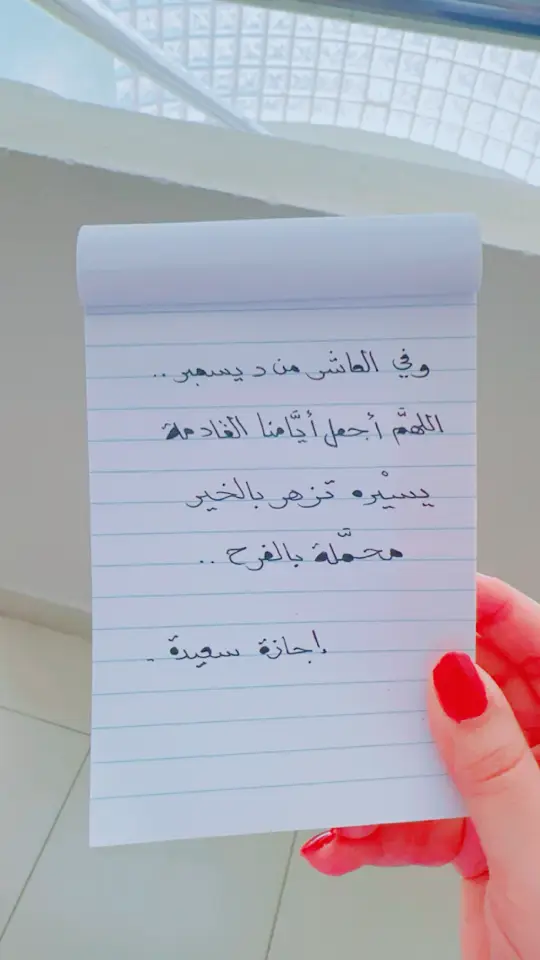 وفي العاشر من ديسمبر ..
اللهمَّ أجعل أيَّامنا القادمة
يسيْره تزهر بالخير
محمَّلة بالفرح ..
إجازة سعيدة .